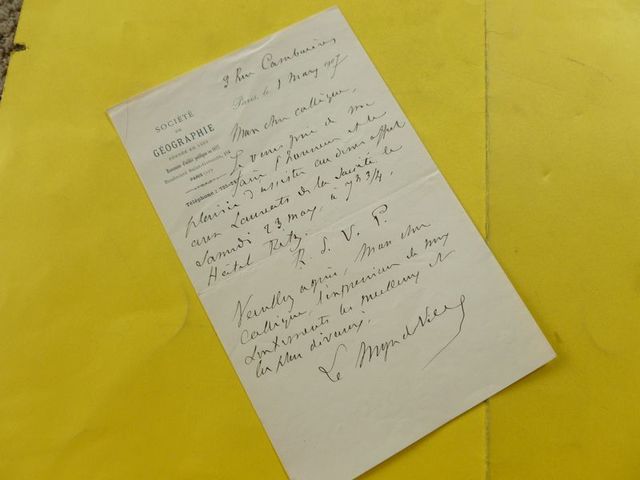 9 Rue Cambacérès
SOCIÉTÉ
DE
GÉOGRAPHIE
FONDÉE EN 1821
Reconnue d'utilité publique en 1827
Boulevard Saint-Germain, 184
PARIS
Téléphone :
Paris, le 1 May 1907
Mon cher collègue,
Je vous prie de me
faire l'honneur et le
plaisir d'assister au diner offert
aux Lauréats de la Société le
Samedi 23 May, à 7h 3/4,
Hôtel Ritz.
R. S. V. P.
Veuillez agréer, mon cher
Collègue, l'expression de mes
sentiments les meilleurs et
les plus dévoués.
Le